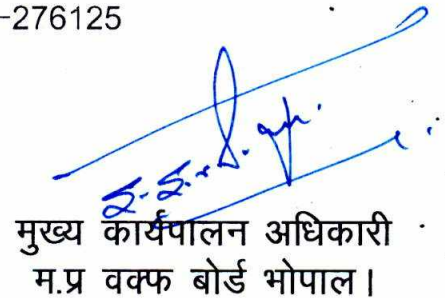 -276125
मुख्य कार्यपालन अधिकारी
म.प्र वक्फ बोर्ड भोपाल।